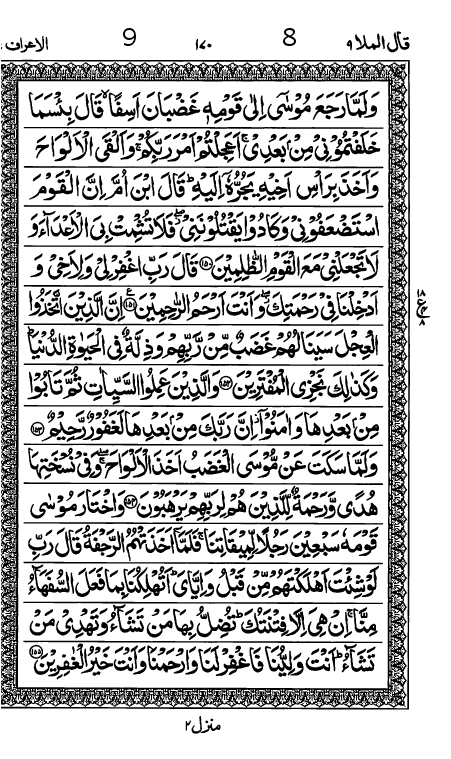 قال الملا ۹ 8 ۱۷۰ 9 الاعراف ۷
وَلَمَّا رَجَعَ مُوْسٰۤى اِلٰى قَوْمِهٖ غَضْبَانَ اَسِفًا ۙ قَالَ بِئْسَمَا
خَلَفْتُمُوْنِیْ مِنْۢ بَعْدِیْ ۚ اَعَجِلْتُمْ اَمْرَ رَبِّكُمْ ۚ وَاَلْقَى الْاَلْوَاحَ
وَاَخَذَ بِرَاْسِ اَخِیْهِ یَجُرُّهٗۤ اِلَیْهِ ؕ قَالَ ابْنَ اُمَّ اِنَّ الْقَوْمَ
اسْتَضْعَفُوْنِیْ وَكَادُوْا یَقْتُلُوْنَنِیْ ۖؗ فَلَا تُشْمِتْ بِیَ الْاَعْدَآءَ وَ
لَا تَجْعَلْنِیْ مَعَ الْقَوْمِ الظّٰلِمِیْنَ ﴿۱۵۰﴾ قَالَ رَبِّ اغْفِرْ لِیْ وَلِاَخِیْ وَ
اَدْخِلْنَا فِیْ رَحْمَتِكَ ۖؗ وَاَنْتَ اَرْحَمُ الرّٰحِمِیْنَ ﴿۱۵۱﴾ ع اِنَّ الَّذِیْنَ اتَّخَذُوا
۱۸ ع ۸
الْعِجْلَ سَیَنَالُهُمْ غَضَبٌ مِّنْ رَّبِّهِمْ وَذِلَّةٌ فِی الْحَیٰوةِ الدُّنْیَا ؕ
وَكَذٰلِكَ نَجْزِی الْمُفْتَرِیْنَ ﴿۱۵۲﴾ وَالَّذِیْنَ عَمِلُوا السَّیِّاٰتِ ثُمَّ تَابُوْا
مِنْۢ بَعْدِهَا وَاٰمَنُوْۤا ؗ اِنَّ رَبَّكَ مِنْۢ بَعْدِهَا لَغَفُوْرٌ رَّحِیْمٌ ﴿۱۵۳﴾
وَلَمَّا سَكَتَ عَنْ مُّوْسَى الْغَضَبُ اَخَذَ الْاَلْوَاحَ ۖۚ وَفِیْ نُسْخَتِهَا
هُدًى وَّرَحْمَةٌ لِّلَّذِیْنَ هُمْ لِرَبِّهِمْ یَرْهَبُوْنَ ﴿۱۵۴﴾ وَاخْتَارَ مُوْسٰى
قَوْمَهٗ سَبْعِیْنَ رَجُلًا لِّمِیْقَاتِنَا ۚ فَلَمَّاۤ اَخَذَتْهُمُ الرَّجْفَةُ قَالَ رَبِّ
لَوْ شِئْتَ اَهْلَكْتَهُمْ مِّنْ قَبْلُ وَاِیَّایَ ؕ اَتُهْلِكُنَا بِمَا فَعَلَ السُّفَهَآءُ
مِنَّا ۚ اِنْ هِیَ اِلَّا فِتْنَتُكَ ؕ تُضِلُّ بِهَا مَنْ تَشَآءُ وَتَهْدِیْ مَنْ
تَشَآءُ ؕ اَنْتَ وَلِیُّنَا فَاغْفِرْ لَنَا وَارْحَمْنَا وَاَنْتَ خَیْرُ الْغٰفِرِیْنَ ﴿۱۵۵﴾
منزل ۲